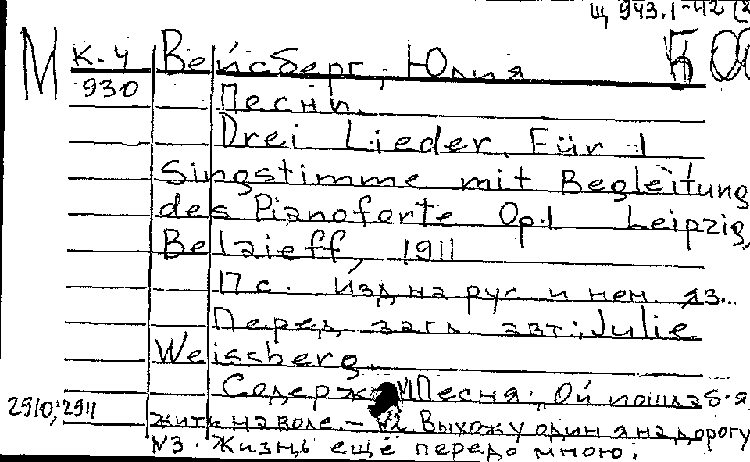 Щ 943.1-42
М К-4 Вейсберг, Юлия
930 Песни.
Drei Lieder. Für 1
Singstimme mit Begleitung
des Pianoforte Op.1 Leipzig,
Belaieff, 1911
17 с. Изд на рус и нем яз.
Перед загл авт: Julie
Weissberg.
Содерж Песня: Ой пошла б я
2910, 2911 жить на воле – №2 Выхожу один я на дорогу
№3. Жизнь ещё передо мною.